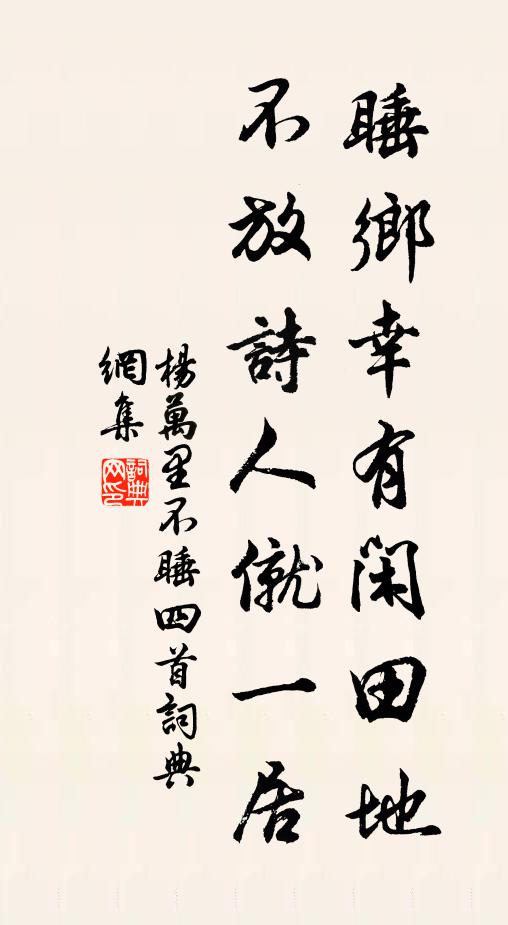 睡鄉幸有閑田地
不放詩人僦一居
楊萬里不睡四首詞典
網集
詞典
网印